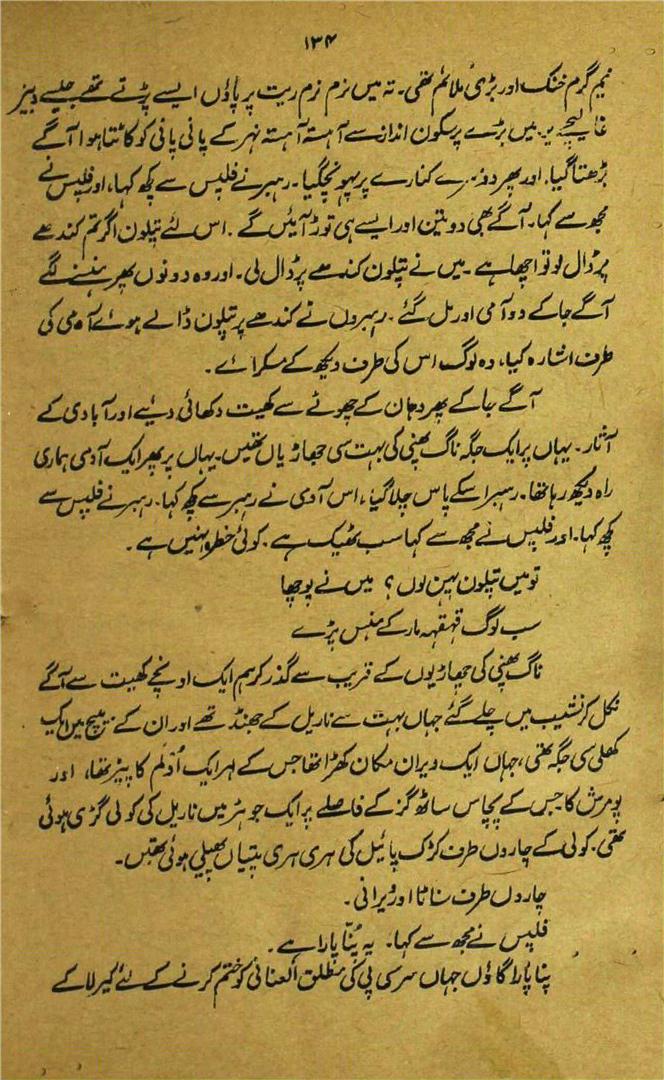 ۱۳۴
نیم گرم خنک اور بڑی ملائم تھی۔ تہ میں نرم نرم ریت پر پاؤں ایسے پڑتے تھے جیسے دبیز
غالیچے پر۔ میں بڑے پرسکون انداز سے آہستہ آہستہ نہر کے پانی پانی کو کاٹتا ہوا آگے
بڑھتا گیا۔ اور پھر دوسرے کنارے پر پہونچ گیا۔ رہبر نے فلپس سے کچھ کہا، اور فلپس نے
مجھ سے کہا۔ آگے بھی دو تین اور ایسے ہی توڑ آئیں گے۔ اس لئے پتلون اگر تم کندھے
پر ڈال لو تو اچھا ہے۔ میں نے پتلون کندھے پر ڈال لی۔ اور وہ دونوں پھر ہنسنے لگے
آگے جا کے دو آدمی اور مل گئے۔ رہبروں نے کندھے پر پتلون ڈالے ہوئے آدمی کی
طرف اشارہ کیا، وہ لوگ اس کی طرف دیکھ کے مسکرائے۔
آگے جا کے پھر دھان کے چھوٹے سے کھیت دکھائی دئیے اور آبادی کے
آثار۔ یہاں پر ایک جگہ ناگ پھنی کی بہت سی جھاڑیاں تھیں۔ یہاں پر پھر ایک آدمی ہماری
راہ دیکھ رہا تھا۔ رہبر اسکے پاس چلا گیا، اس آدمی نے رہبر سے کچھ کہا۔ رہبر نے فلپس سے
کچھ کہا۔ اور فلپس نے مجھ سے کہا سب ٹھیک ہے۔ کوئی خطرہ نہیں ہے۔
تو میں پتلون پہن لوں؟ میں نے پوچھا
سب لوگ قہقہہ مار کے ہنس پڑے
ناگ پھنی کی جھاڑیوں کے قریب سے گذر کر ہم ایک اونچے کھیت سے آگے
نکل کر نشیب میں چلے گئے جہاں بہت سے ناریل کے جھنڈ تھے اور ان کے بیچ میں ایک
کھلی سی جگہ تھی، جہاں ایک ویران مکان کھڑا تھا جس کے ایک اُدلم کا پیڑ تھا، اور
پومرش کا جس کے پچاس ساٹھ گز کے فاصلے پر ایک جوہڑ میں ناریل کی کولی گڑی ہوئی
تھی۔ کولی کے چاروں طرف کڑک پائیل کی ہری ہری پتیاں پھیلی ہوئی تھیں۔
چاروں طرف سناٹا اور ویرانی۔
فلپس نے مجھ سے کہا۔ یہ پُنّا پارا ہے۔
پنا پارا گاؤں جہاں سر سی پی کی مطلق العنانی کو ختم کرنے کے لئے کیرلا کے